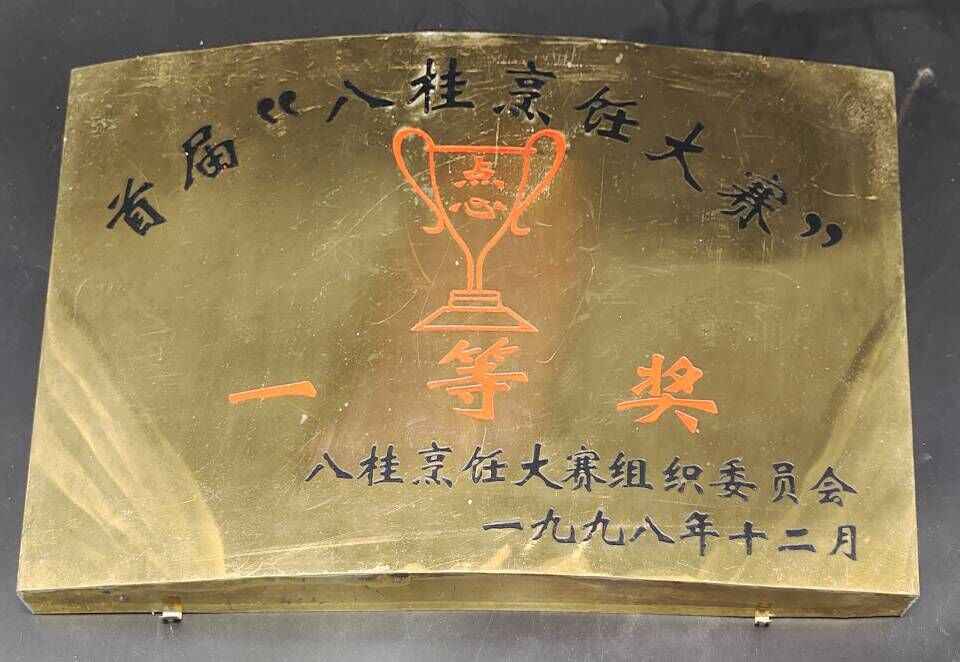 首届“八桂烹饪大赛”
点心
一等奖
八桂烹饪大赛组织委员会
一九九八年十二月